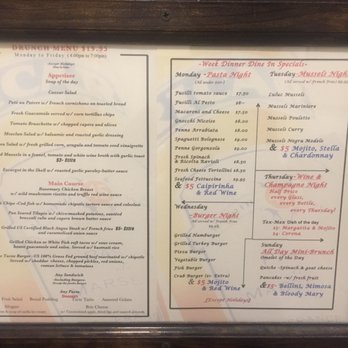 BRUNCH MENU $19.95
Monday to Friday (4:00pm to 7:00pm)
Except Holidays
Appetizer
Soup of the day
Caesar Salad
Paté au Poivre w/ French cornichons on toasted bread
Fresh Guacamole served w/ corn tortillas chips
Tomato Bruschetta w/ chopped capers and olives
Mesclun Salad w/ balsamic and roasted garlic dressing
Salad w/ fresh grilled corn, arugula and tomato and vinaigrette
Mussels in a fennel, tomato and white wine broth with garlic toast
$3-
Escargot in the Shell w/ roasted garlic parsley-butter sauce
Main Course
Rosemary Chicken Breast
w/ wild mushrooms risotto and red wine sauce
& Chips-Cod fish w/ homemade chipotle tartare sauce and coleslaw
Pan Seared Tilapia w/ citrus-mashed potatoes, sauteed
broccoli rabe and capers brown butter sauce
Grilled US Certified Black Angus Steak w/ French fries
Grilled Chicken or White Fish soft tacos w/ sour cream,
house guacamole and salsa, served w/ basmati rice
Taco Burger- US 100% Grass-Fed ground beef marinated w/ chipotle
served w/ cheddar cheese, chopped pickles, red onions,
roman lettuce & tomatoes
Any Sandwich
(Including Burgers)
Except the Pasta Burger
Any Pasta
Dessert
Fruit Salad Bread Pudding Tarte Tatin Assorted Gelato
Brie Cheese
-Week Dinner Dine In Specials-
Monday -Pasta Night
(All under $20)
Fusilli tomato sauce 17.50
Fusilli Al Pesto
Macaroni and Cheese
Gnocchi Nicoise 18.00
Penne Arrabiata 18.00
Spaghetti Bolognese
Penne Gorgonzola 18.00
Fresh Spinach
& Ricotta Ravioli 18.00
Fresh Cheese Tortellini 18.50
Seafood Fettuccine
& $5 Caipirinha
& Red Wine
Wednesday
-Burger Night
Grilled Hamburger
Grilled Turkey Burger
Pasta Burger
Vegetable Burger
Fish Burger
Crab Burger
& $5 Mojito
& Red Wine
[Except Holidays]
Tuesday -Mussels Night
(All served w/ french fries)
Lulas Mussels
Mussels Mariniere
Mussels Poulette
Mussels Curry
Mussels Negra Modelo
& $5 Mojito, Stella
& Chardonnay
Thursday -Wine &
Champagne Night
Half Price
every Glass,
every Bottle,
every Year!
& $5- Margarita & Mojito
Corona
Sunday
All Day Mini-Brunch
Omelet of the Day
Quiche -Spinach & goat cheese
Pancake or French Toast
& $5- Bellini, Mimosa
& Bloody Mary